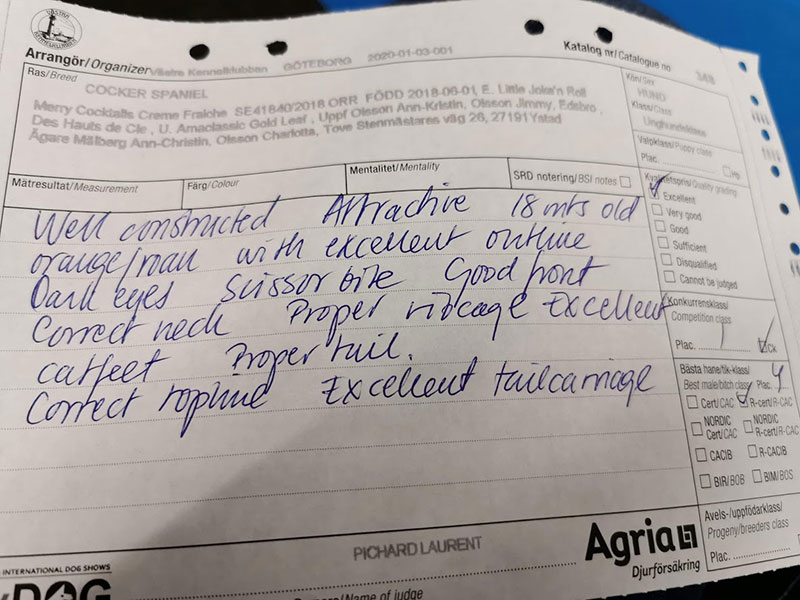 VÄSTRA KENNELKLUBBEN
Arrangör/Organizer Västra Kennelklubben GÖTEBORG 2020-01-03-001
Katalog nr/Catalogue no 348
Ras/Breed
COCKER SPANIEL
Merry Cocktails Creme Fraiche SE41840/2018 ORR FÖDD 2018-06-01, E. Little Joke'n Roll
Des Hauts de Cie, U. Amaclassic Gold Leaf, Uppf Olsson Ann-Kristin, Olsson Jimmy, Edsbro,
Ägare Målberg Ann-Christin, Olsson Charlotta, Tove Stenmästares väg 26, 27191 Ystad
Kön/Sex
HUND
Klass/Class
Unghundsklass
Valpklass/Puppy class
Plac. Hp
Mätresultat/Measurement
Färg/Colour
Mentalitet/Mentality
SRD notering/BSI notes
Kvalitetspris/Quality grading
Excellent
Very good
Good
Sufficient
Disqualified
Cannot be judged
Well constructed Attractive 18 mts old
orange/roan with excellent outline
Dark eyes scissor bite Good front
Correct neck Proper ribcage Excellent
catfeet Proper tail.
Correct topline Excellent tailcarriage
Konkurrensklass/
Competition class
Plac. 1 Ck
Bästa hane/tik-klass/
Best male/bitch class Plac. 4
Cert/CAC R-cert/R-CAC
NORDIC Cert/CAC NORDIC R-cert/R-CAC
CACIB R-CACIB
BIR/BOB BIM/BOS
Avels-/uppfödarklass/
Progeny/breeders class
Plac.
PICHARD LAURENT
Name of judge
Agria
Djurförsäkring
INTERNATIONAL DOG SHOWS
DOG